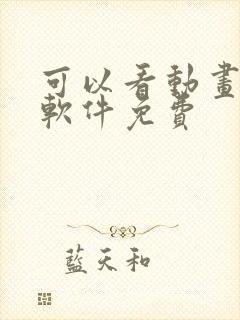 可以看動畫
軟件免費
藍天和